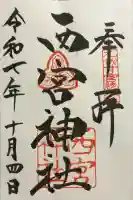 奉拝
西宮神社
令和七年十月四日